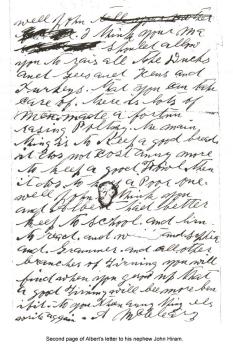 well John
I think your Ma
should allow
you to rais all the Ducks
and Gees and Hens and
Turkeys. that you can take
care of. there is lots of
Men made a fortun
rasing Poltry. the main
thing is to keep a good bread
it dos not cost any more
to keep a good fowl than
it dos to keep a Poor one.
well John I think you
and had better
keep to school. and lirn
to read. and
and Grammer and all other
branches of lirning you will
find when you grow up that
a good lirning will be more ben
ifit to you than any thing els
write again. A
Second page of Albert's letter to his nephew John Hiram.